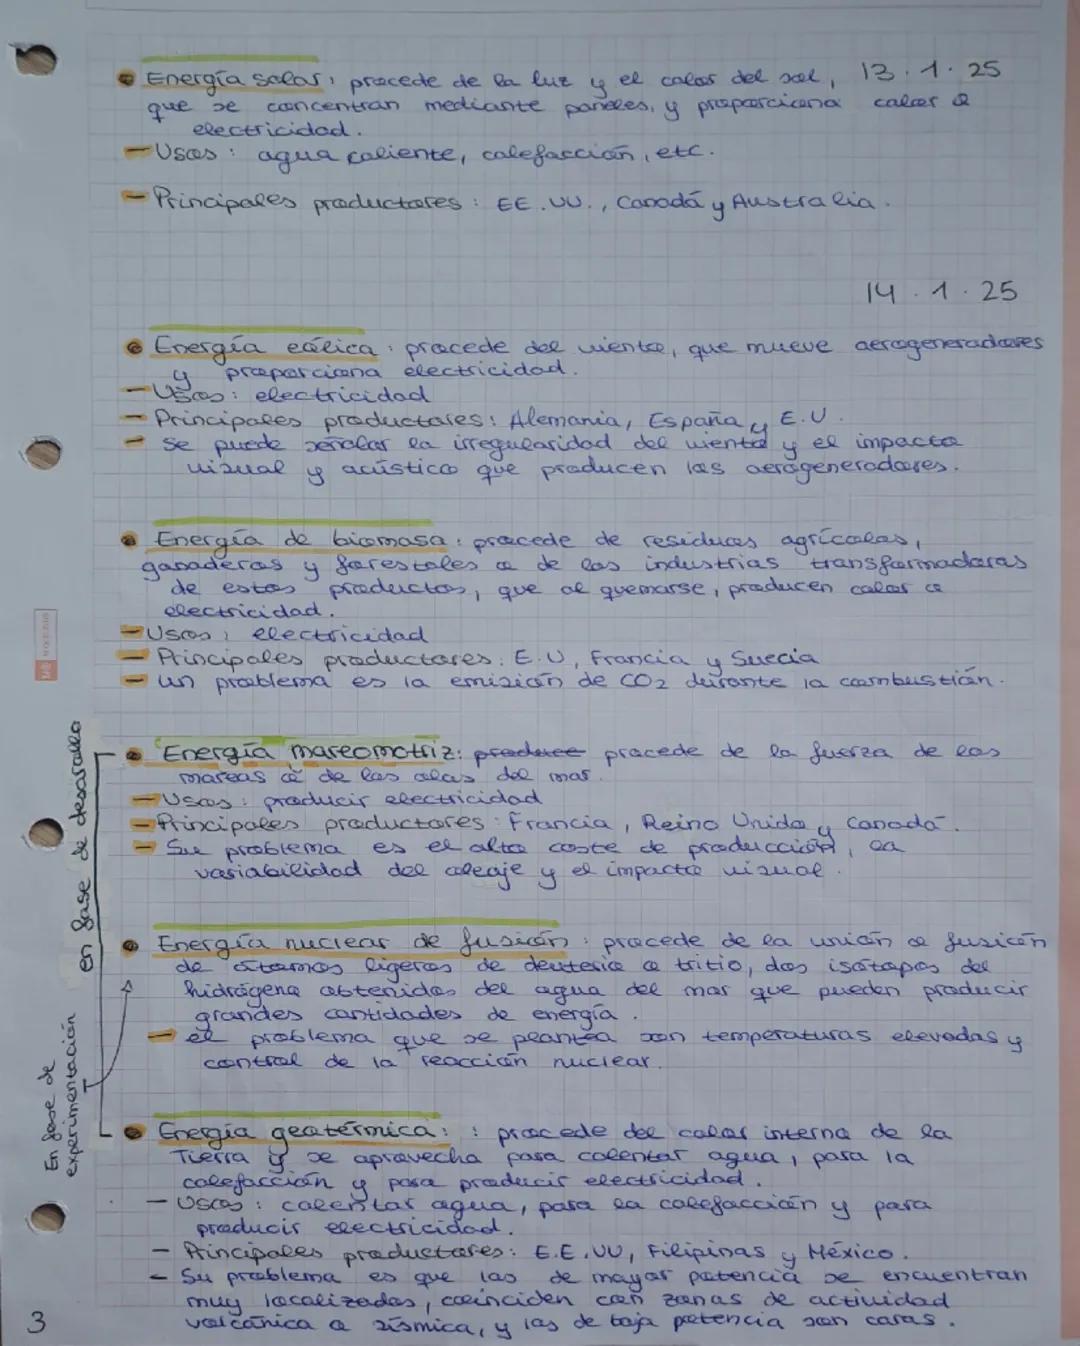 Energía solar: procede de la luz y el calor del sol, 13.1.25
que se concentran mediante paneles, y proporciona calor o
electricidad.
- Usos: agua caliente, calefacción, etc.
- Principales productores: EE.UU., Canadá y Australia.
14.1.25
Energía eólica: procede del viento, que mueve aerogeneradores
y proporciona electricidad.
- Usos: electricidad
- Principales productores: Alemania, España y E.U.
- se puede señalar la irregularidad del viento y el impacto
visual y acústico que producen los aerogeneradores.
Energía de biomasa: procede de residuos agrícolas,
ganaderos y forestales o de las industrias transformadoras
de estos productos, que al quemarse, producen calor o
electricidad.
- Usos: electricidad
- Principales productores: E.U, Francia y Suecia
- un problema es la emisión de CO2 durante la combustión.
en fase de desarollo
Energía mareomotriz: procede de la fuerza de las
mareas o de las olas del mar.
- Usos: producir electricidad
- Principales productores: Francia, Reino Unido y Canadá.
- Su problema es el alto coste de producción, la
variabilidad del oleaje y el impacto visual.
En fase de
experimentación
Energía nuclear de fusión: procede de la unión o fusión
de átomos ligeros de deuterio o tritio, dos isótopos del
hidrógeno obtenidos del agua del mar que pueden producir
grandes cantidades de energía.
- el problema que se plantea son temperaturas elevadas y
control de la reacción nuclear.
Energía geotérmica: : procede del calor interno de la
Tierra y se aprovecha para calentar agua, para la
calefacción y para producir electricidad.
- Usos: calentar agua, para la calefacción y para
producir electricidad.
- Principales productores: E.E.UU, Filipinas y México.
- Su problema es que las de mayor potencia se encuentran
muy localizadas, coinciden con zonas de actividad
volcánica o sísmica, y las de baja potencia son caras.
3